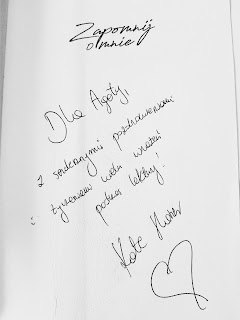 Zapomnij
o mnie
Dla Agaty,
z serdecznymi pozdrowieniami
i życzeniem wielu wrażeń
podczas lektury!
Kate